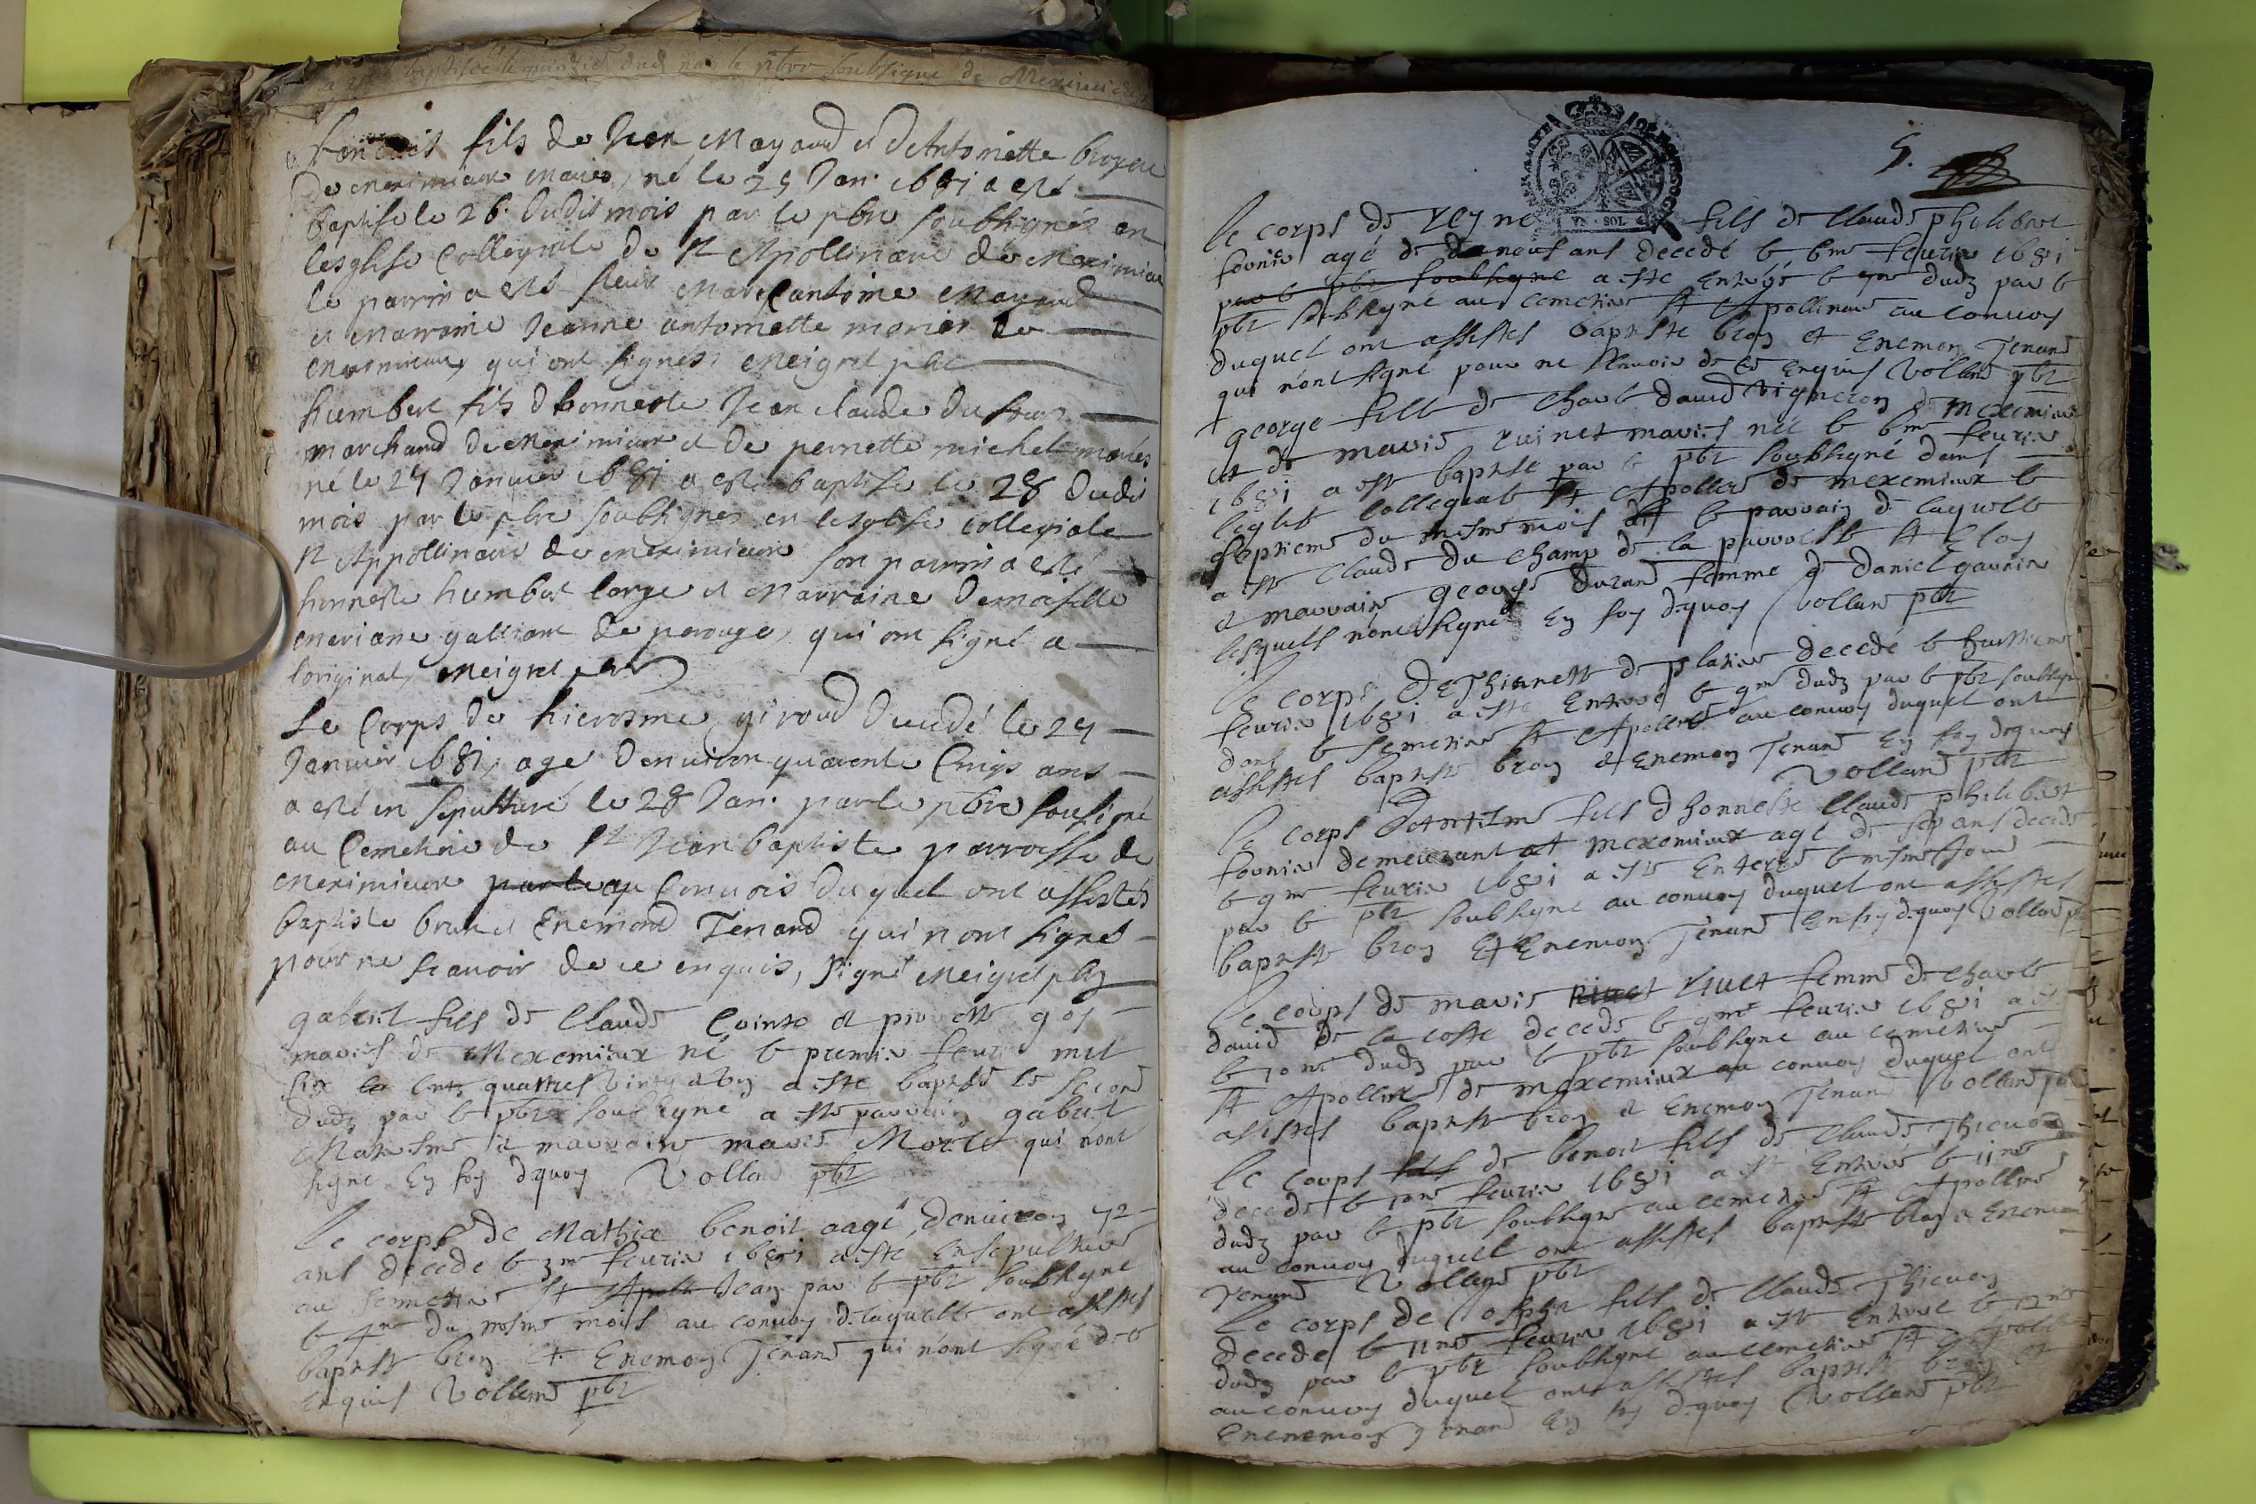 baptisé le dud par le pbre soubsigné de Meximieu
fils de Jean Mayaud et dAntoinette
de meximieux mariés, né le 25 Jan. 1681 a esté
baptisé le 26. dudit mois par le pbre soubsignés en
lesglise Collegialle de St Apollinaire de Meximieux
le parrin a esté sieur Marc antoine Mayaud
et Marraine Jeanne antoinette morier de
meximieux, qui ont signés, Meigret pbre
humbert fils dhonneste Jean claude du four
marchand de meximieux et de pernette michel mariés
né le 27 Janvier 1681 a esté baptisé le 28 dudit
mois par le pbre soubsignés en lesglise collegiale
St Appollinaire de meximieux son parrin a esté
honneste humbert large et Marraine Demoiselle
meriane galliane de perouge, qui ont signé a
loriginal, Meigret pbr
Le Corps de hierosme giroud decedé le 27
Janvier 1681, agé denviron quarente Cinqs ans
a esté en sepulturé le 28 Jan. par le pbre sousigné
au Cemetiere de St Jean baptiste parroisse de
meximieux par le au Convois duquel ont assistés
baptiste brun et Enemond Tenard qui nont signés
pour ne scavoir de ce enquis, signé Meigret pbr
gabriel fils de Claude Cointe et pierrette goy
mariés de Meximieux né le premier feurier mil
six cents quattres vingt et un a esté baptisé le second
dudz par le pbr soubsigné a esté parrain gabriel
et marraine marie Morle qui nont
signé En foy dquoy Volland pbr
Le corps de Mathie benoit aagé denviron 72
ans decede le 3me feurier 1681 a esté Ensepulturé
au semetiere St Apoll Jean par le pbr soubsigné
le 4me du mesme mois au convoy d laquelle ont assistes
baptiste broy et Enemon Tenand qui nont signé de ce
enquis Volland pbr
5.
VN SOL
Le corps de reyne fils de Claude philibert
fournier agé de neuf ans decedé le 6me feurier 1681
par le pbr soubsigne a esté Enterré le 7me dudz par le
pbr soubsigné au cemetiere St Apollinaire au convoy
duquel ont assistes baptiste broy et Enemon Tenand
qui nont signé pour ne scavoir de ce Enquis Volland pbr
george fille de Charle david vigneron de Meximieux
et de marie ruinet mariés née le 6me feurier
1681 a esté baptisé par le pbr soubsigné dans
leglise Collegiale St Apollin de meximieux le
septieme du mesme mois le parrain d laquelle
a esté Claude du Champ de la parroisse St Eloy
et marraine george durand femme de daniel gaurier
lesquels nont signé En foy dquoy Volland pbr
Le corps dEthiennette de platiere decedé le huittieme
feurier 1681 a esté Enterré le 9me dudz par le pbr soubsigné
dans le semetiere St Apollin au convoy duquel ont
assistes baptiste broy et Enemon Tenand En foy dquoy
Volland pbr
Le corps fils dhonneste Claude philibert
fournier demeurant a meximieux agé de sept ans decede
le 9me feurier 1681 a esté Enterré le mesme Jour
par le pbr soubsigné au convoy duquel ont assistes
baptiste broy et Enemon Tenand En foy dquoy Volland pbr
Le corps de marie rivet femme de charle
david de la coste decede le 9me feurier 1681 a esté
le 10me dudz par le pbr soubsigné au cemetiere
St Apollin de meximieux au convoy duquel ont
assistes baptiste broy et Enemon Tenand Volland pbr
Le corps fils de benoit fils de Claude Thieuon
decede le 10me feurier 1681 a esté Enterré le 11me
dudz par le pbr soubsigné au cemetiere St Apollin
au convoy duquel ont assistes baptiste broy et Enemon
Tenand Volland pbr
Le corps de Joseph fils de Claude Thieuon
decede le 11me feurier 1681 a esté Enterré le 12me
dudz par le pbr soubsigné au cemetiere St Apollin
au convoy duquel ont assistes baptiste broy et
Enemon Tenand En foy dquoy Volland pbr